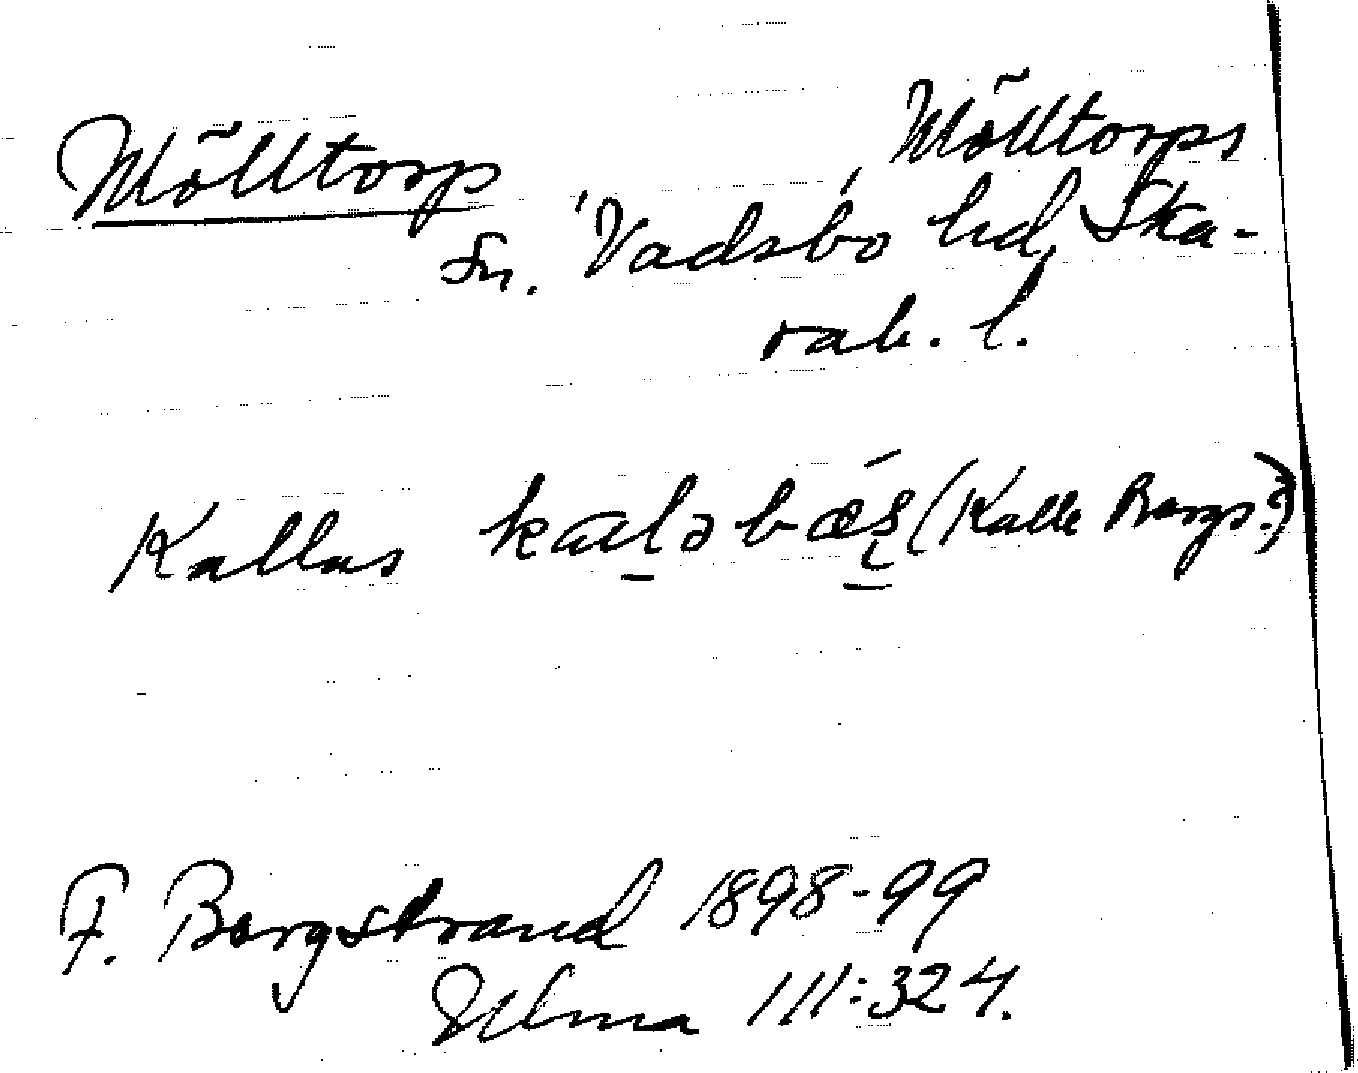 Mölltorp Mölltorps
sn. Vadsbo hd, Ska-
rab. l.
Kallas kalə bæs̨ (Kalle Bergs?)
F. Bergstrand 1898-99
Ulma 111:324.